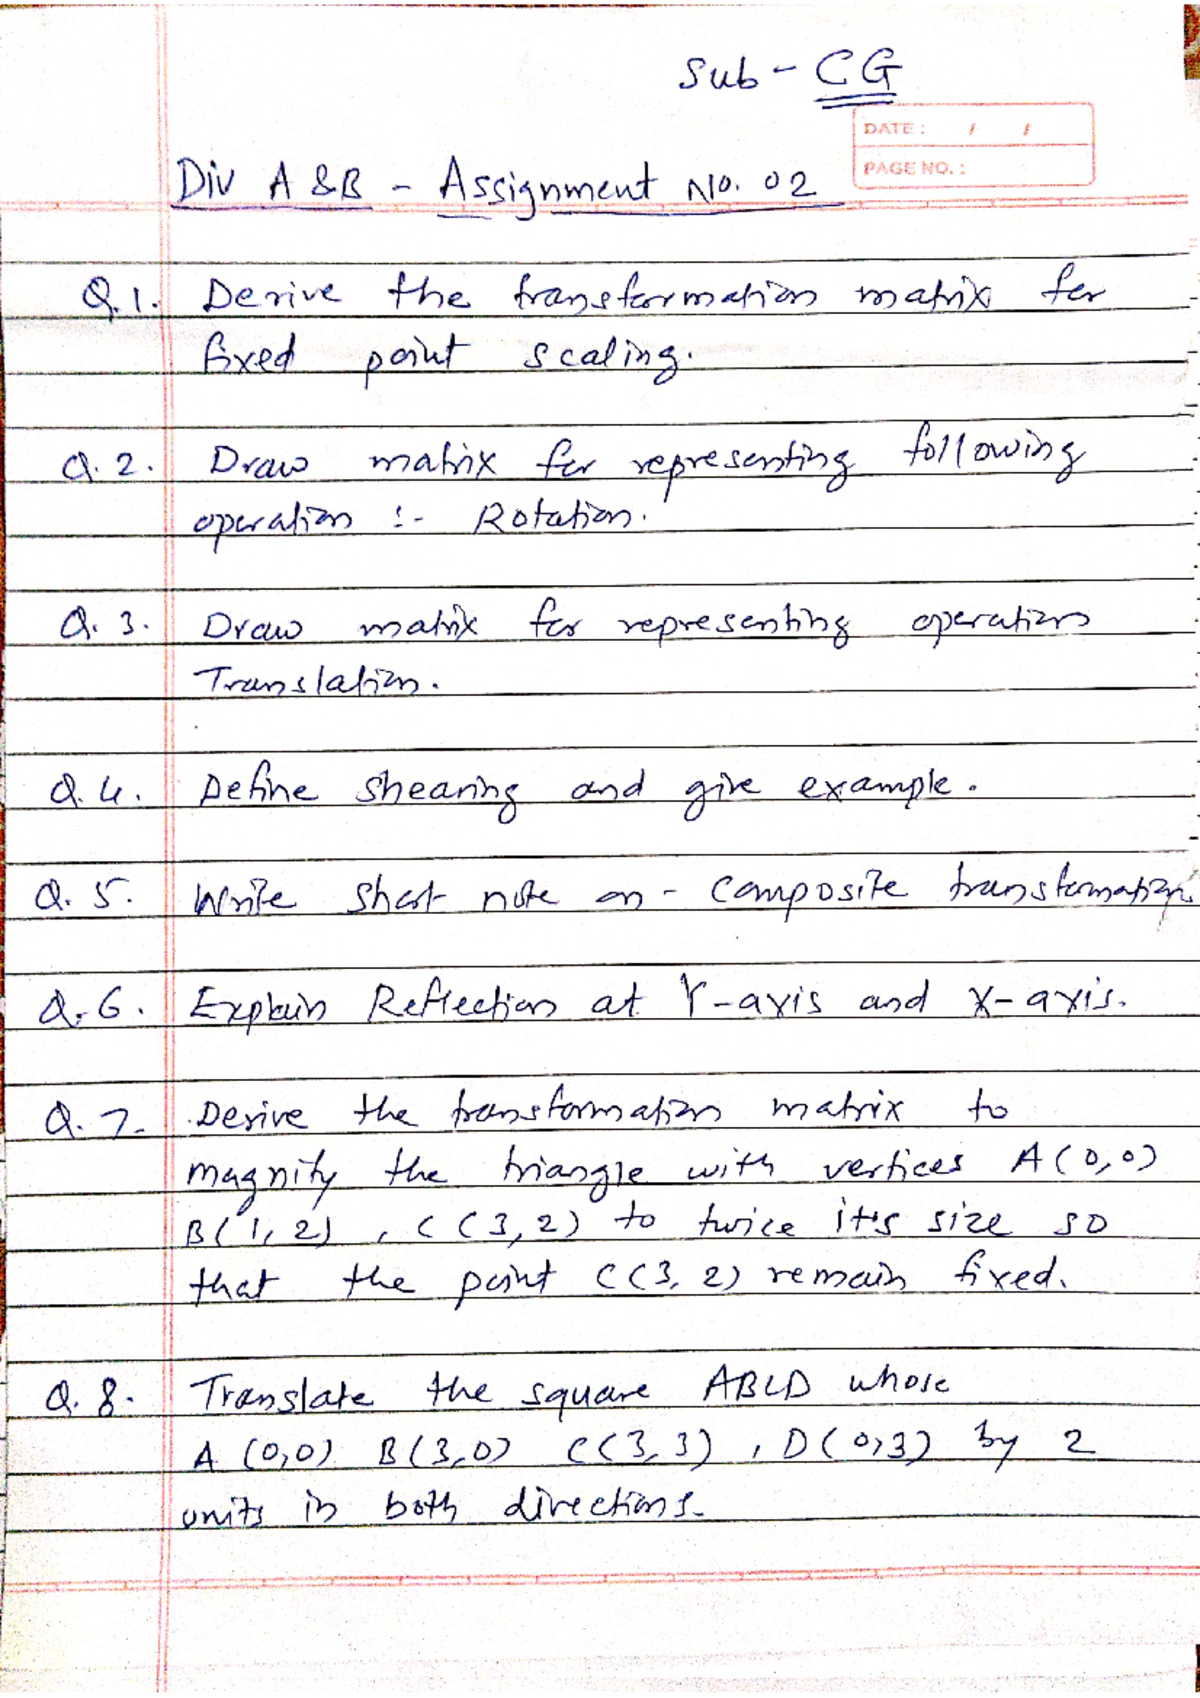 Sub - CG
DATE : / /
PAGE NO. :
Div A & B - Assignment No. 02
Q.1. Derive the transformation matrix for
fixed point scaling.
Q.2. Draw matrix for representing following
operation :- Rotation.
Q.3. Draw matrix for representing operation
Translation.
Q.4. Define shearing and give example.
Q.5. Write short note on - Composite transformation.
Q.6. Explain Reflection at Y-axis and X-axis.
Q.7. Derive the transformation matrix to
magnify the triangle with vertices A(0,0)
B(1,2) , C(3,2) to twice it's size so
that the point C(3,2) remain fixed.
Q.8. Translate the square ABCD whose
A (0,0) B(3,0) C(3,3) , D(0,3) by 2
units in both directions.